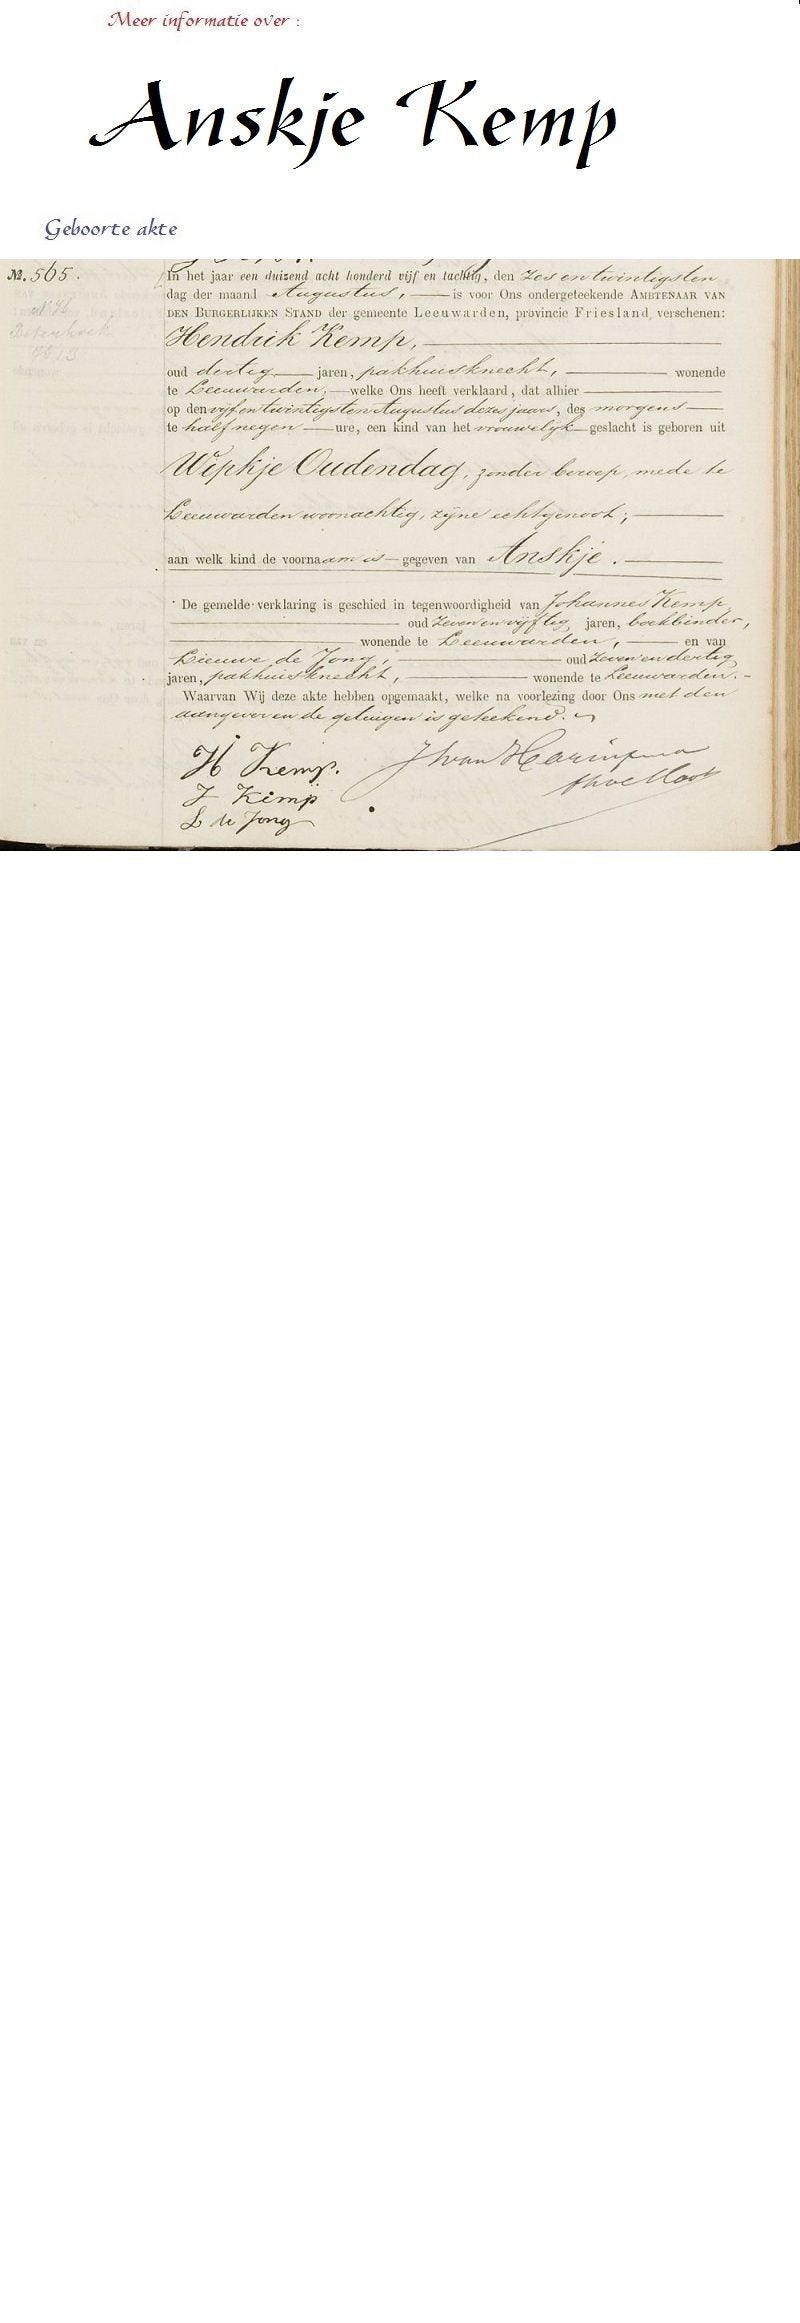 Meer informatie over :
Anskje Kemp
Geboorte akte
№. 565.
In het jaar een duizend acht honderd vijf en tachtig, den zes en twintigsten
dag der maand Augustus, is voor Ons ondergeteekende AMBTENAAR VAN
DEN BURGERLIJKEN STAND der gemeente Leeuwarden, provincie Friesland, verschenen:
Hendrik Kemp,
oud dertig jaren, pakhuisknecht, wonende
te Leeuwarden, welke Ons heeft verklaard, dat alhier
op den vijf en twintigsten Augustus dezes jaars, des morgens
te half negen ure, een kind van het vrouwelijk geslacht is geboren uit
Wipkje Oudendag, zonder beroep, mede te
Leeuwarden woonachtig, zijne echtgenoot;
aan welk kind de voornaam is gegeven van Anskje.
De gemelde verklaring is geschied in tegenwoordigheid van Johannes Kemp,
oud zeven en vijftig jaren, boekbinder,
wonende te Leeuwarden, en van
Lieuwe de Jong, oud zeven en dertig
jaren, pakhuisknecht, wonende te Leeuwarden.
Waarvan Wij deze akte hebben opgemaakt, welke na voorlezing door Ons met den
aangever en de getuigen is geteekend.
H Kemp.
J Kemp
L de Jong